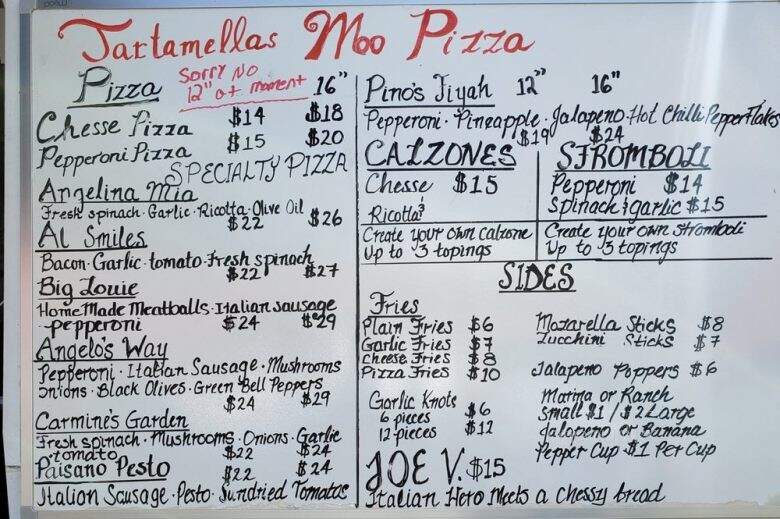 Tartamellas Moo Pizza
Pizza
Sorry No
12" at moment
16"
Chesse Pizza $14 $18
Pepperoni Pizza $15 $20
SPECIALTY PIZZA
Angelina Mia
Fresh spinach · Garlic · Ricotta · Olive Oil
$22 $26
Al Smiles
Bacon · Garlic · tomato · Fresh spinach
$22 $27
Big Louie
Home Made Meatballs · Italian Sausage
· pepperoni $24 $29
Angelo's Way
Pepperoni · Italian Sausage · Mushrooms
Onions · Black Olives · Green Bell Peppers
$24 $29
Carmine's Garden
Fresh spinach · Mushrooms · Onions · Garlic
· tomato $22 $24
Paisano Pesto $22 $24
Italian Sausage · Pesto · Sundried Tomatos
Pino's Fiyah 12" 16"
Pepperoni · Pineapple · Jalapeno · Hot Chilli Pepper Flakes
$19 $24
CALZONES
Chesse $15
Ricotta
Create your own calzone
Up to 3 topings
STROMBOLI
Pepperoni $14
Spinach & garlic $15
Create your own stromboli
Up to 3 topings
SIDES
Fries
Plain Fries $6
Garlic Fries $7
Cheese Fries $8
Pizza Fries $10
Garlic Knots
6 pieces $6
12 pieces $12
Mozarella Sticks $8
Zucchini Sticks $7
Jalapeno Poppers $6
Marina or Ranch
Small $1 / $2 Large
Jalapeno or Banana
Pepper Cup $1 Per Cup
JOE V. $15
Italian Hero Meets a chessy bread